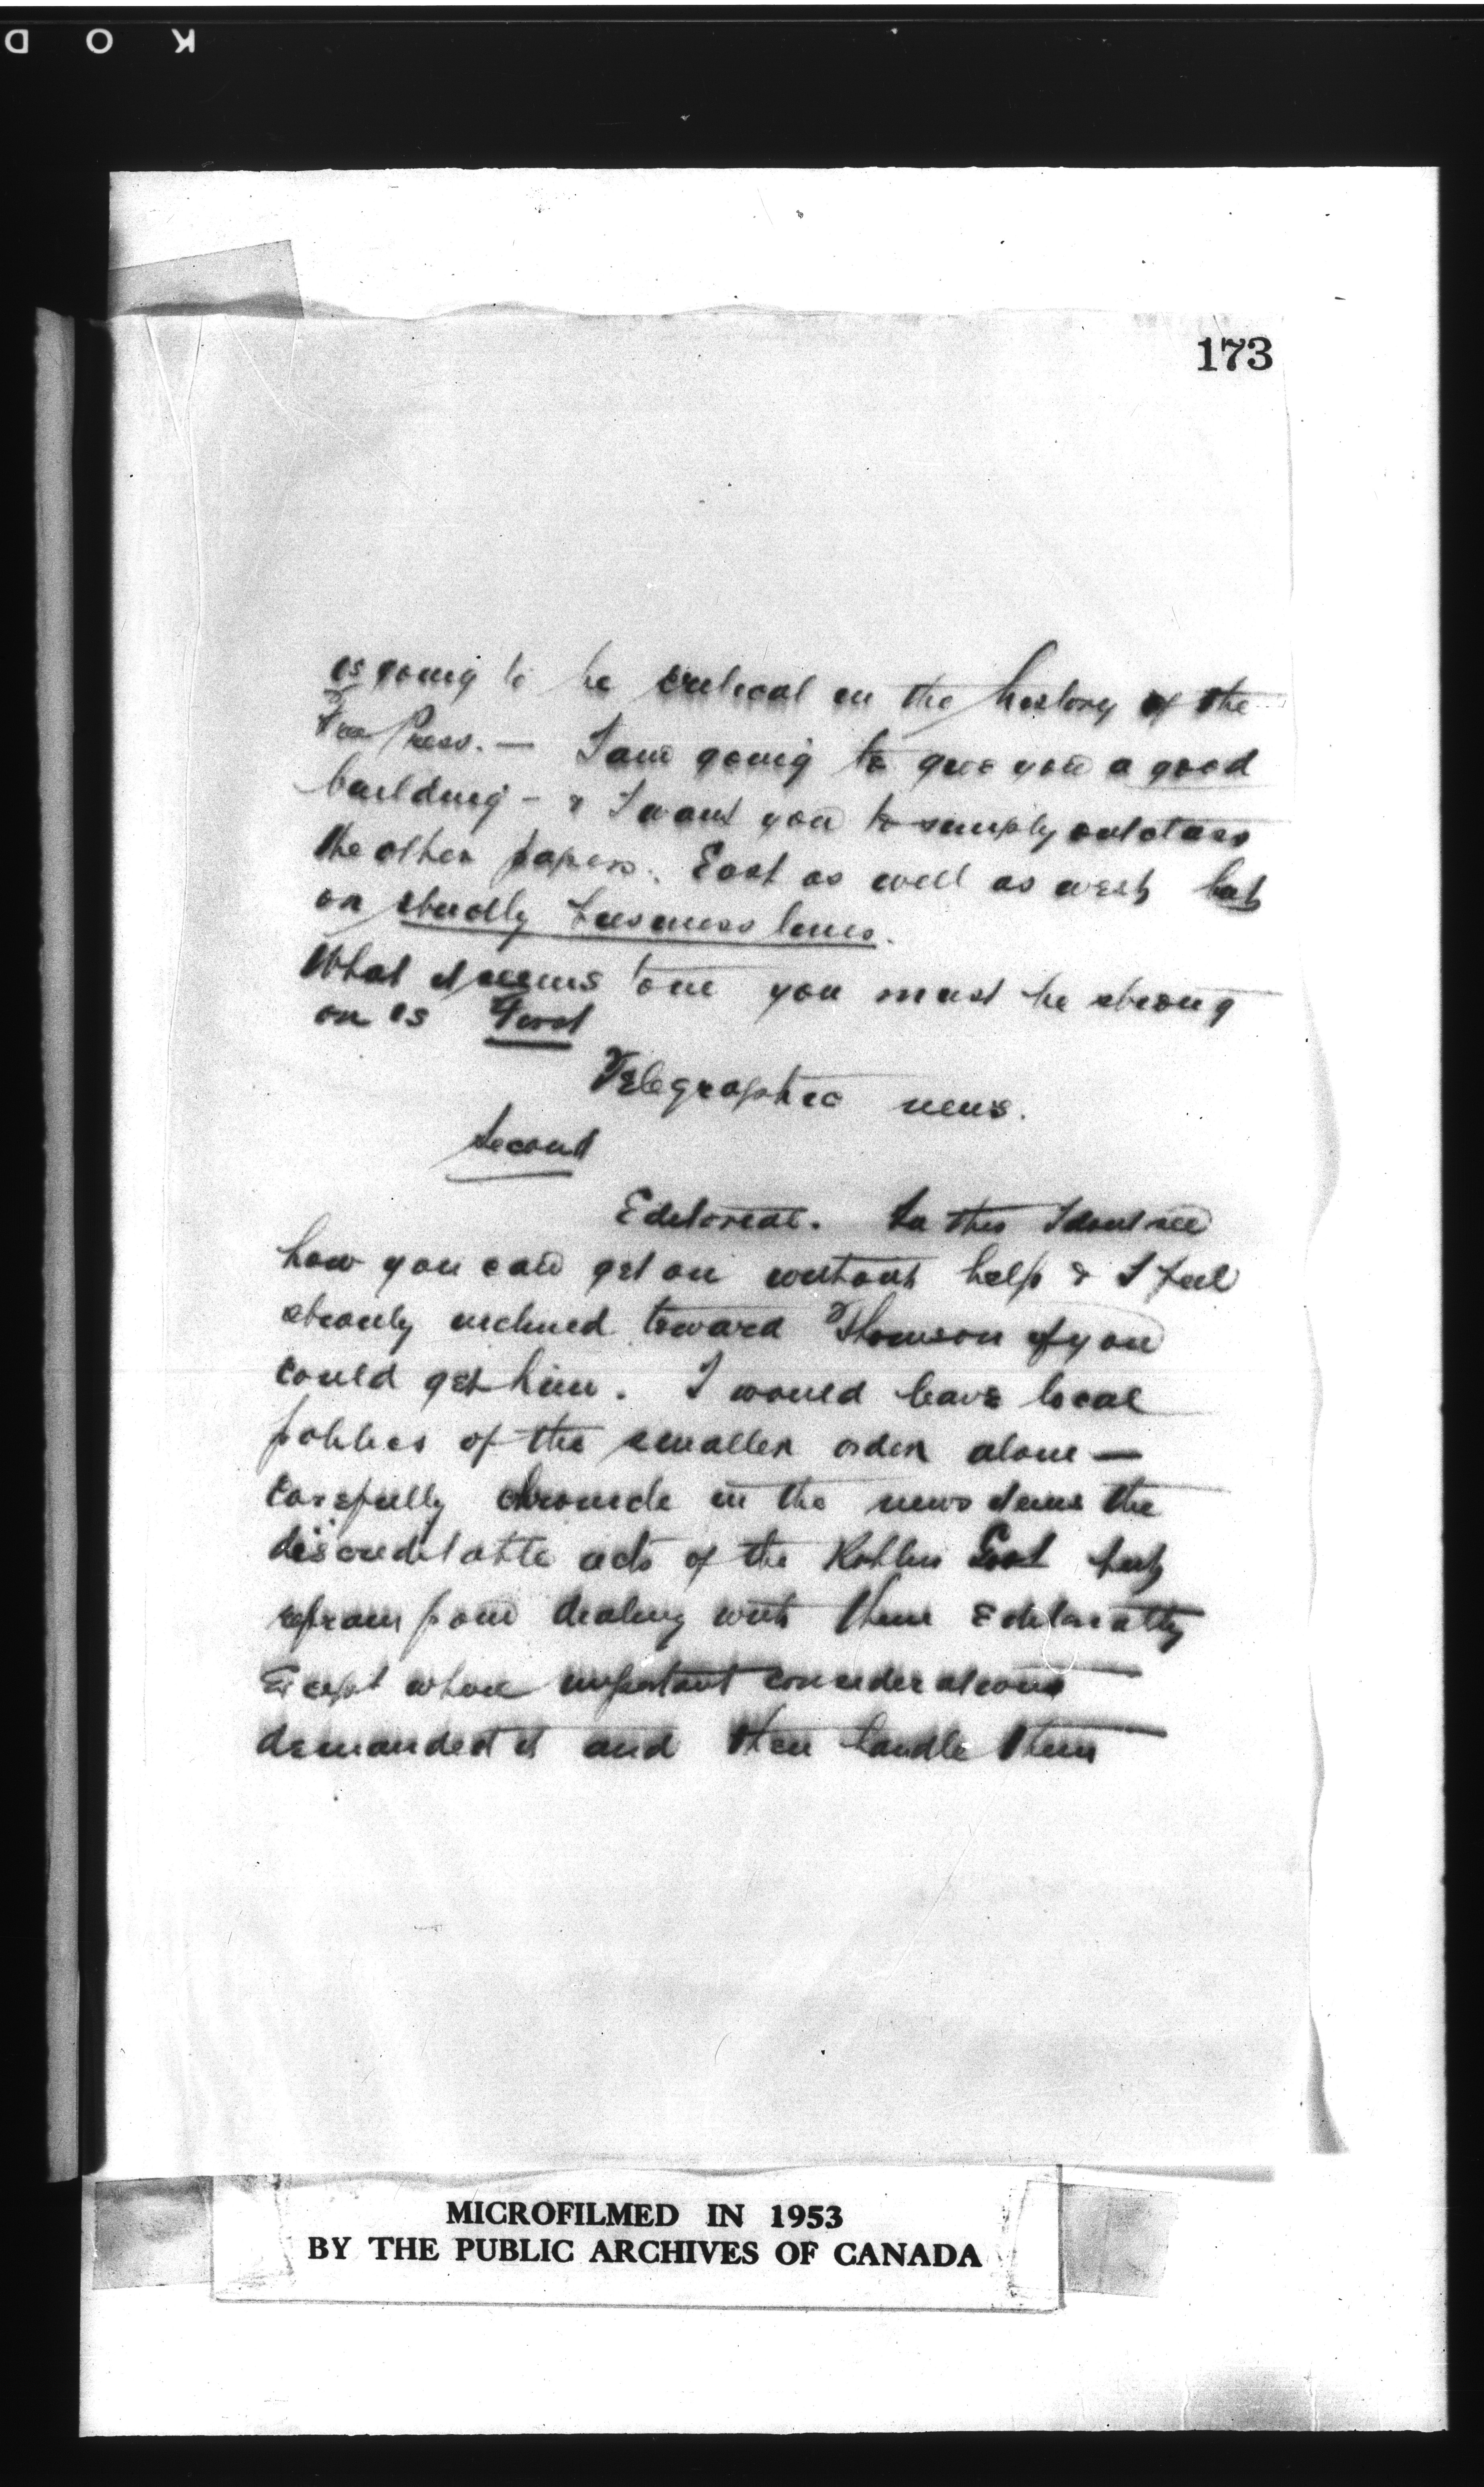 K O D
173
is going to be critical in the history of the
Free Press. — I am going to give you a good
building - & I want you to simply outclass
the other papers. East as well as west but
on strictly business lines.
What it seems to me you must be strong
on is First
Telegraphic news.
Second
Editorial. In this I dont see
how you can get on without help & I feel
strongly inclined toward Thomson if you
could get him. I would leave local
politics of the smaller order alone —
Carefully chronicle in the news items the
discreditable acts of the Roblin Govt but
refrain from dealing with them Editorially
Except where important considerations
demanded it and then handle them
MICROFILMED IN 1953
BY THE PUBLIC ARCHIVES OF CANADA